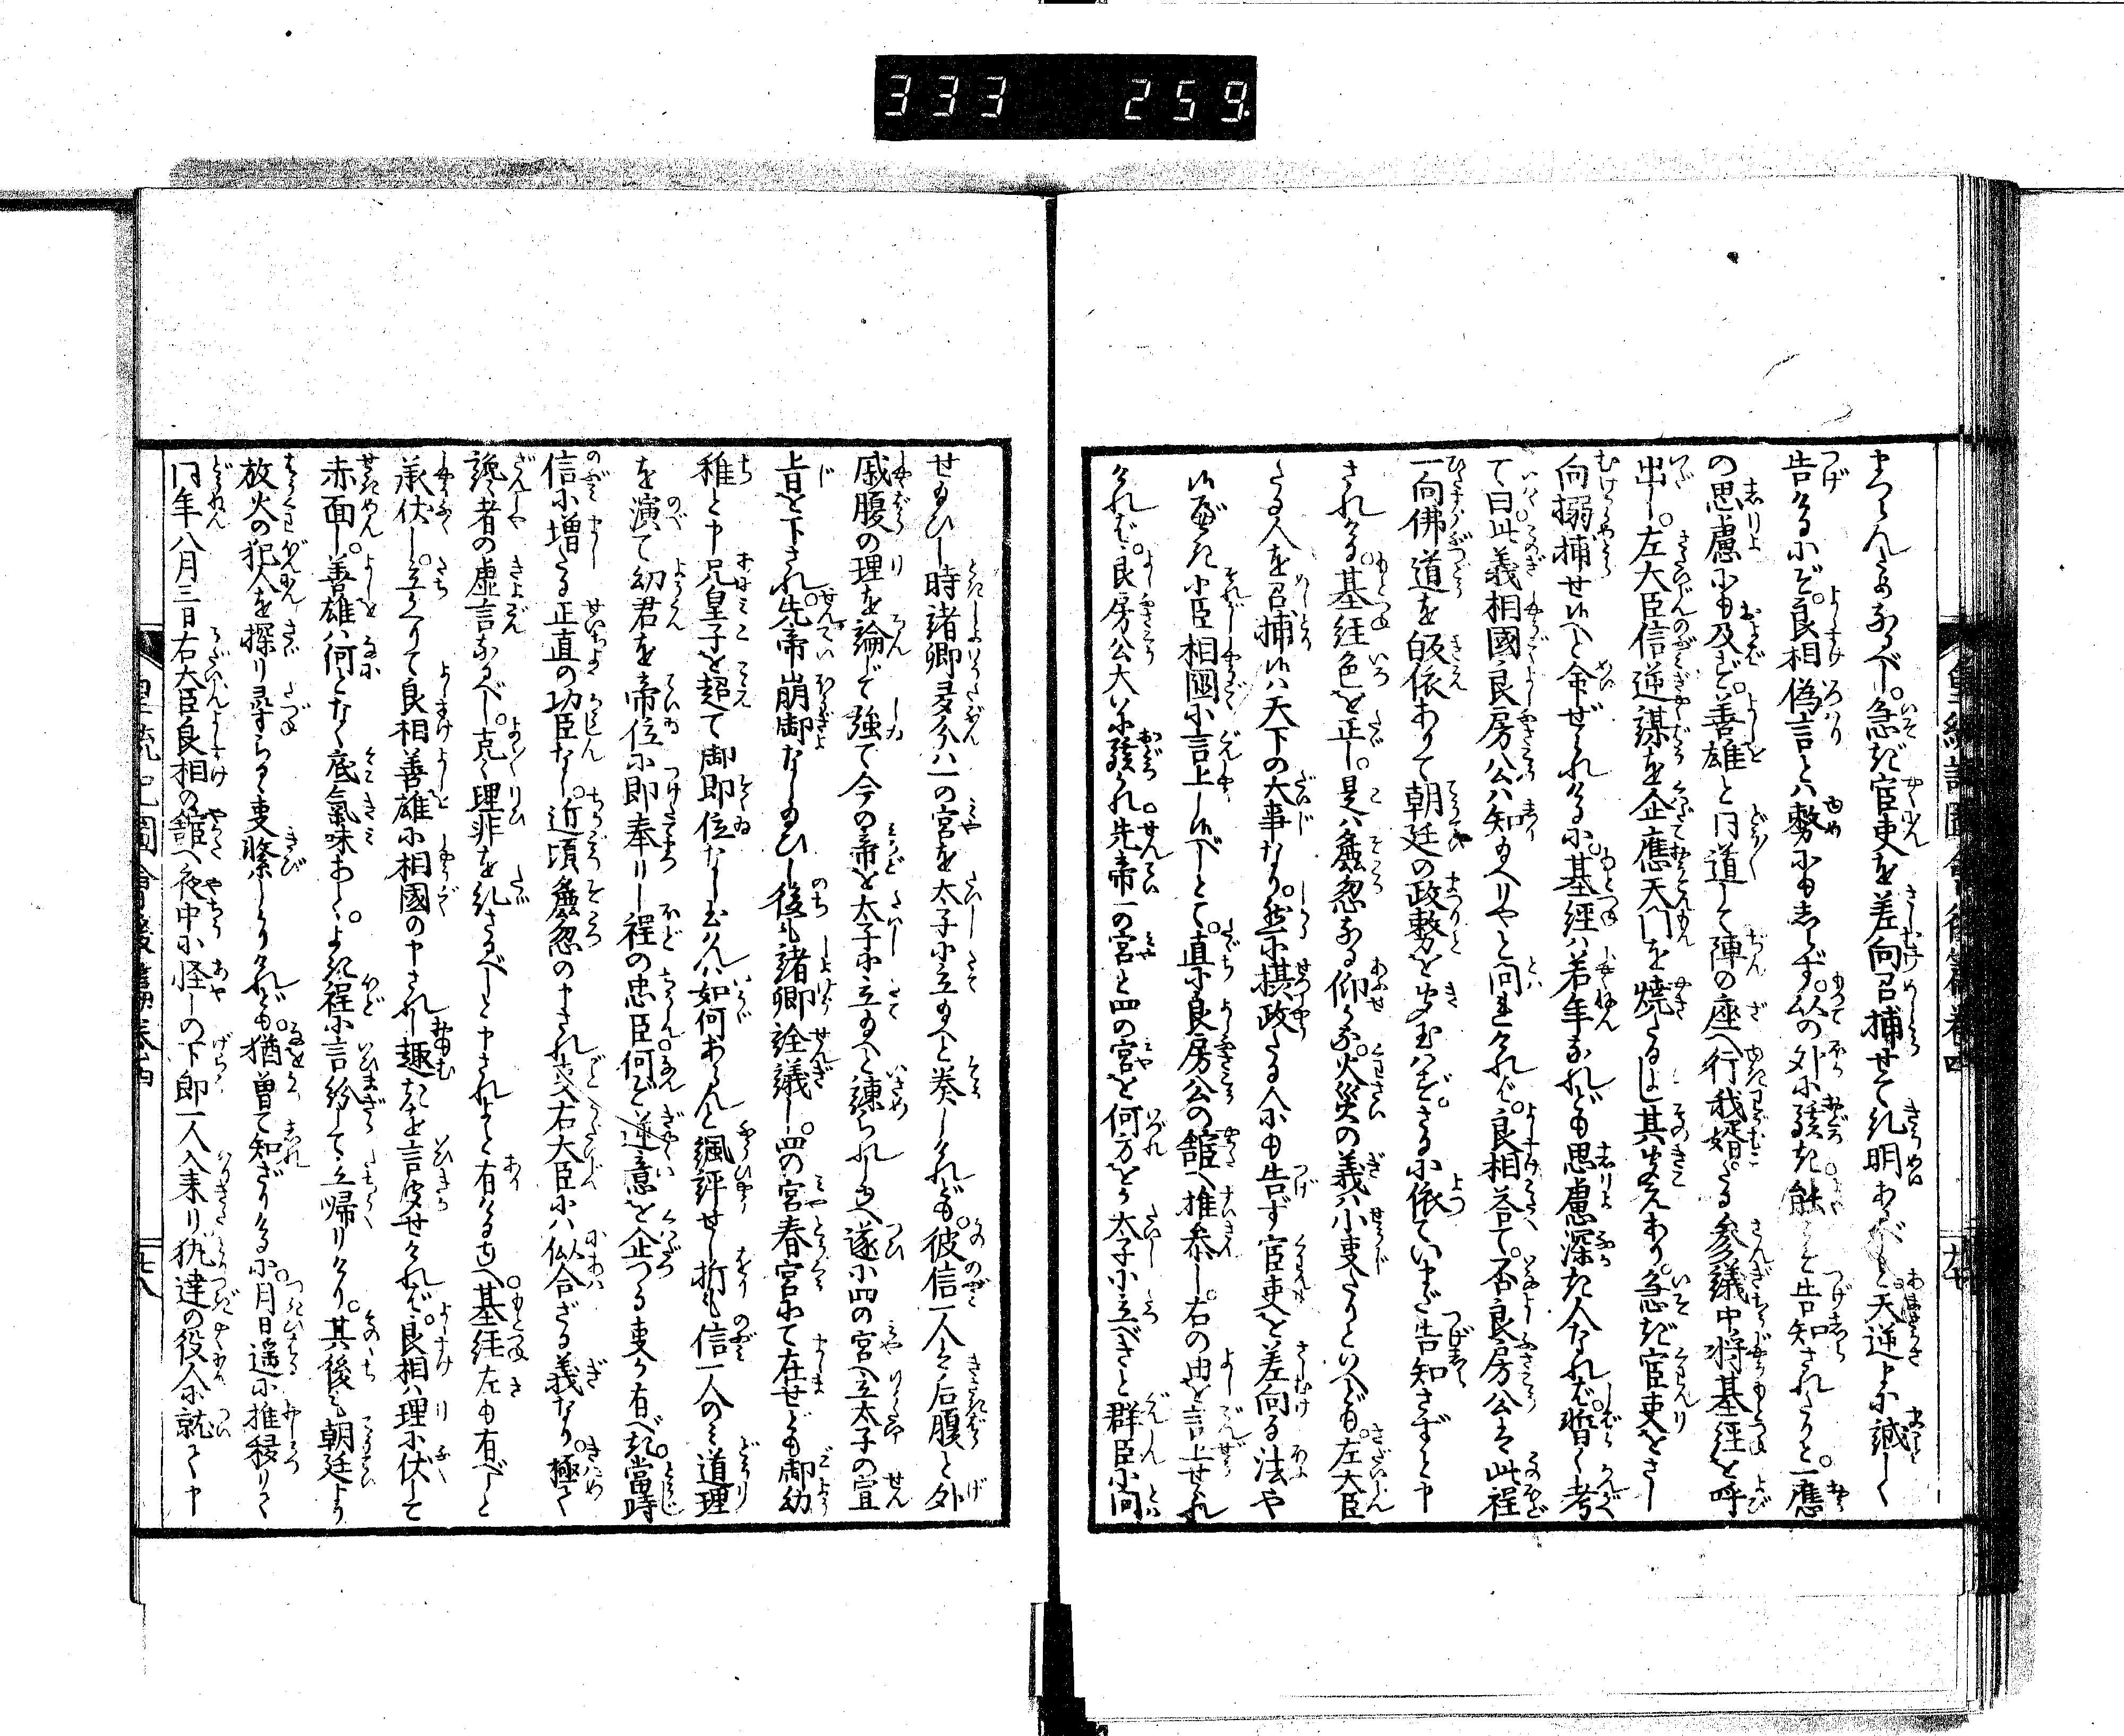 333 259
まつらんためなるべし。急ぎ官吏を差向召捕せて糺明あるべしと天逆よに誠しく
告けるにぞ。良相偽言とは努にもしらず。以の外に駭き能こそ告知されたりと。一應
の思慮にも及ばず。善雄と同道して陣の座へ行我婿たる参議中将基經を呼
出し。左大臣信逆謀を企應天門を焼たるよし其聞えあり。急ぎ官吏をさし
向搦捕せ候へと命ぜられけるに。基經は若年なれども思慮深き人なれば。暫く考
て曰此義相國良房公は知玉へりやと問れければ。良相答て。否良房公は此程
一向佛道を皈依ありて朝廷の政務を聞玉はず。さるに依ていまだ告知さずと申
されける。基經色を正し。是は麁忽なる仰かな。火災の義は小事たりといへども。左大臣
たる人を召捕候は天下の大事なり。然に摂政たる人にも告ず官吏を差向る法や
候べき。小臣相國に言上し候べしとて。直に良房公の舘へ推参し。右の由を言上せられ
ければ。良房公大いに駭かれ。先帝一の宮と四の宮を何方をか太子に立べきと群臣に問
せ玉ひし時諸卿多分は一の宮を太子に立玉へと奏しけれども。彼信一人は后腹と外
戚腹の理を論じて強て今の帝を太子に立玉へと諫られしゆへ遂に四の宮へ立太子の宣
旨を下され。先帝崩御なし玉ひし後も諸卿詮議し。四の宮春宮にて在せども御幼
稚と申兄皇子を超て御即位なし玉はんは如何あらんと諷評せし折も信一人のみ道理
を演て幼君を帝位に即奉りし程の忠臣何ぞ逆意を企つる事か有べき。當時
信に増たる正直の功臣なし。近頃麁忽の申され事右大臣には似合ざる義なり。極て
讒者の虚言なるべし。克々理非を糺さるべしと申されよと有けるゆへ。基經左も有べしと
承伏し。立かへりて良相善雄に相國の申されし趣きを言聞せければ。良相は理に伏して
赤面し。善雄は何となく底氣味あしく。よき程に言紛して立帰りけり。其後も朝廷より
放火の犯人を探り尋ねらるゝ事緊しかりけれども。猶曽て知ざりけるに。月日遥に推移りて
同年八月三日右大臣良相の舘へ夜中に怪しの下郎一人入来り執達の役人に就て申